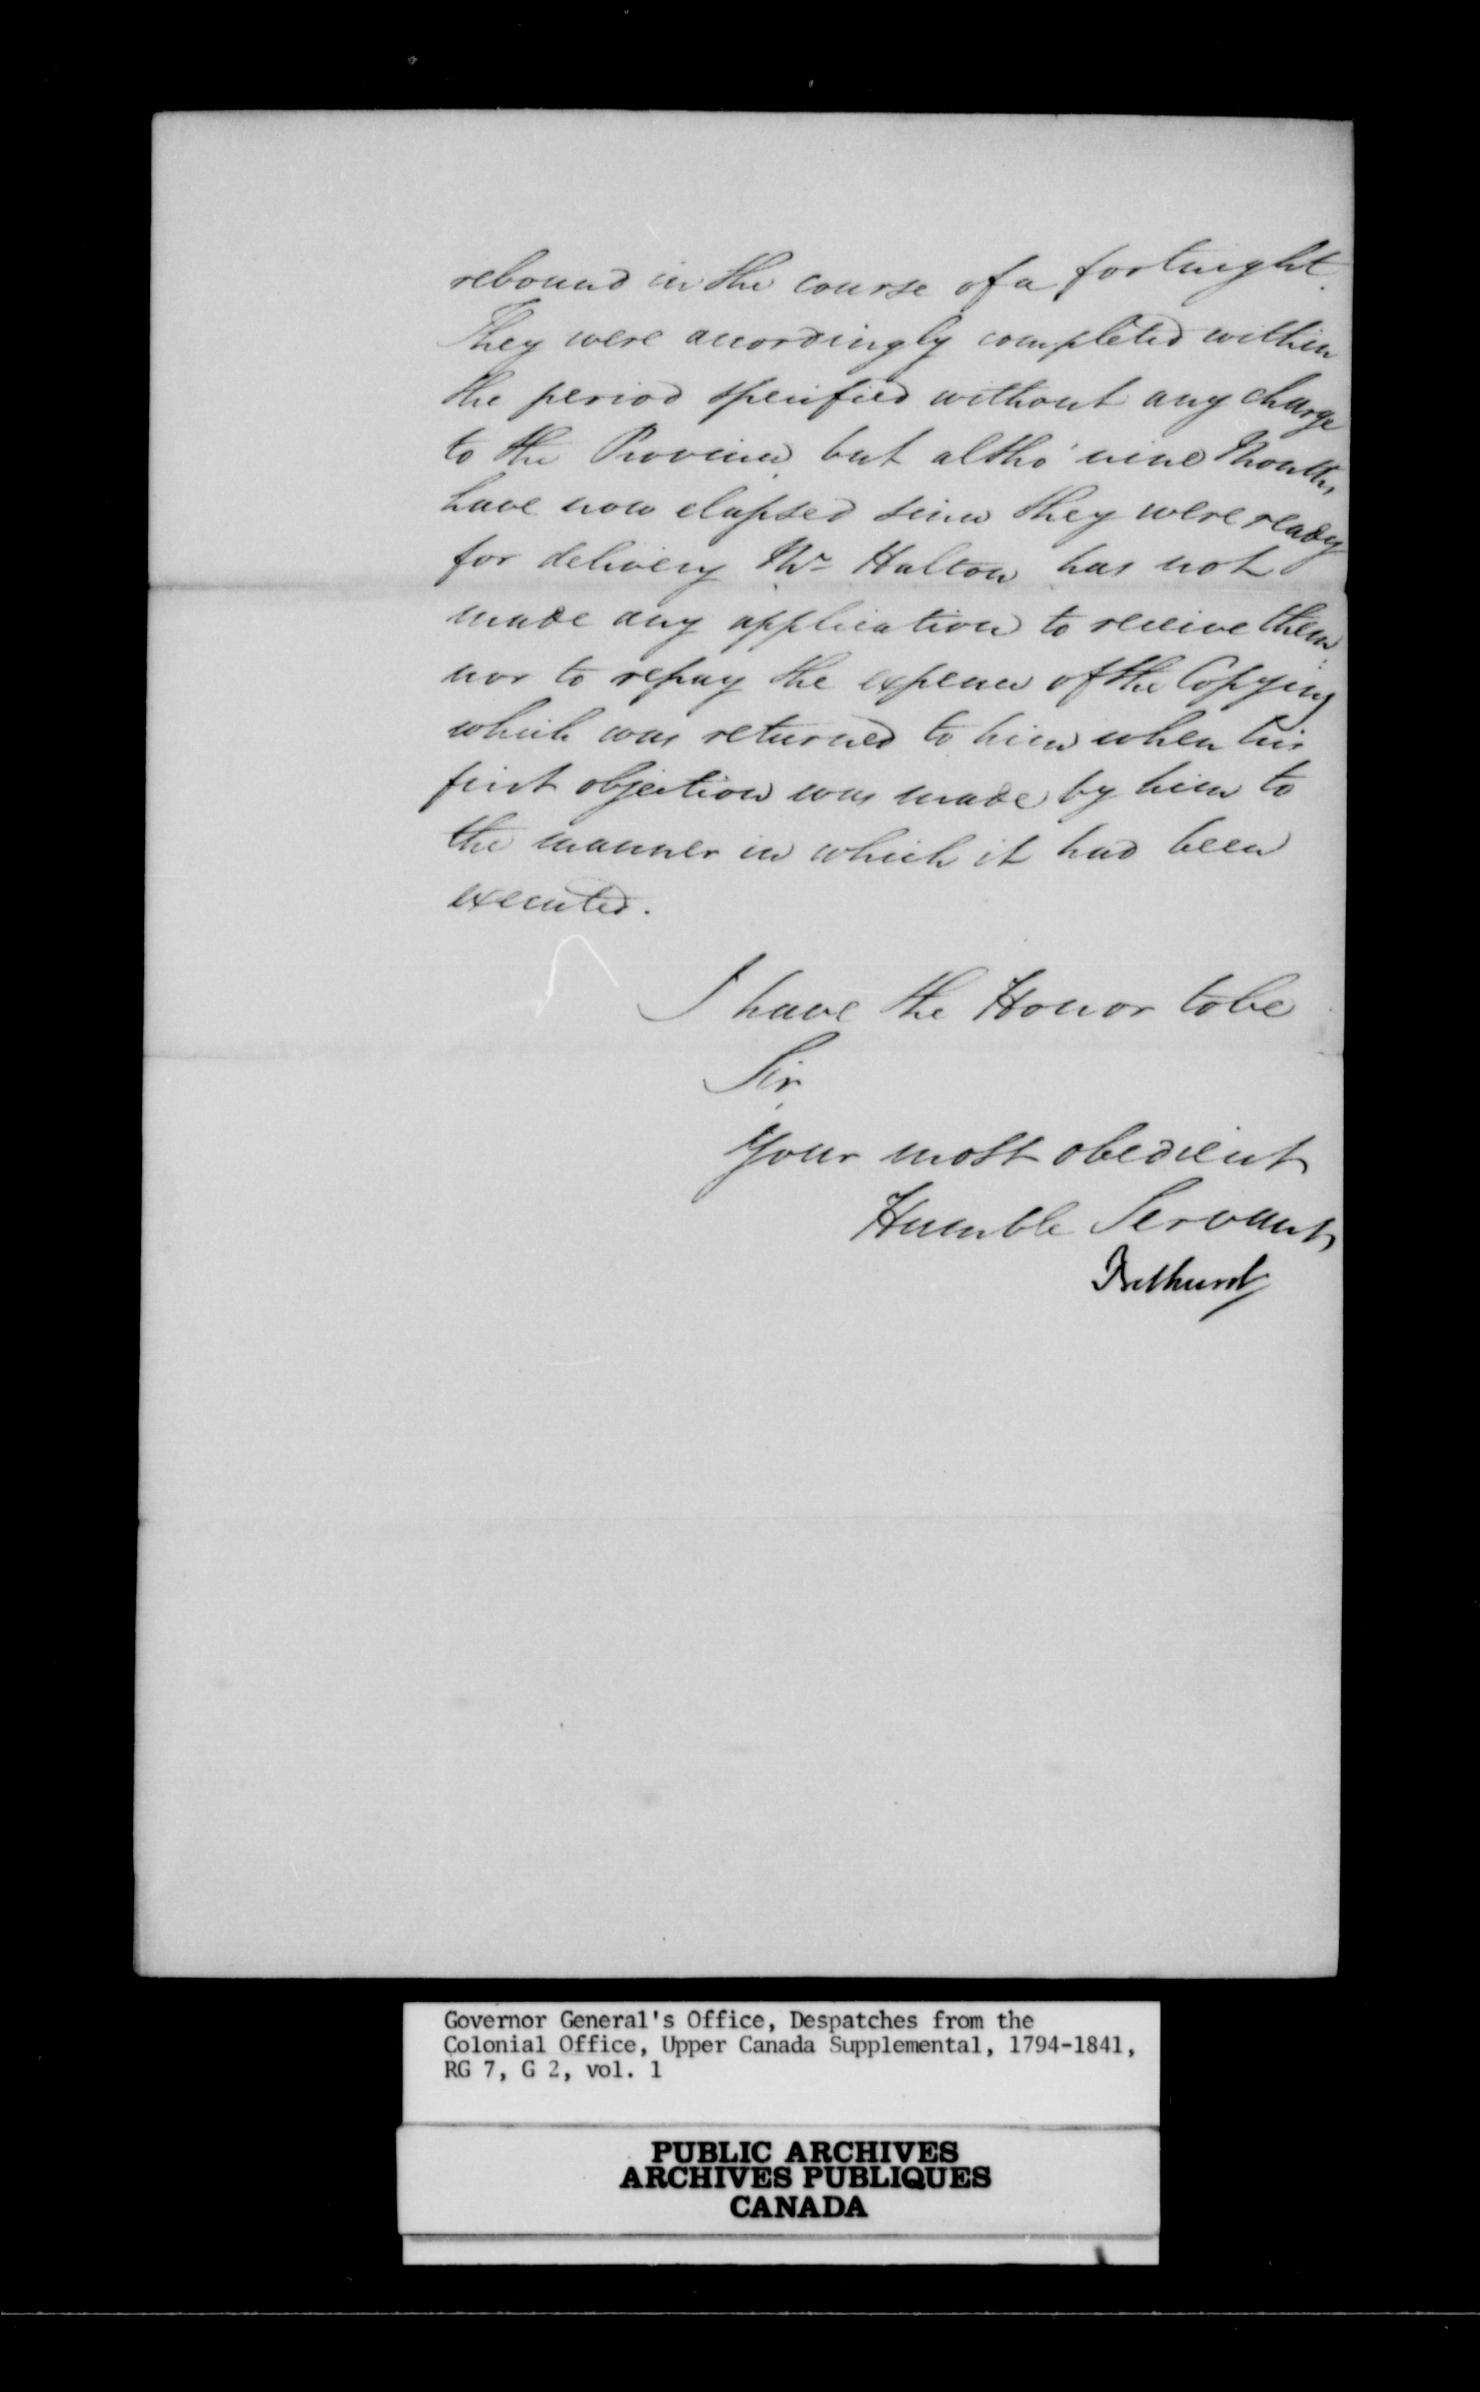 rebound in the course of a fortnight.
They were accordingly completed within
the period specified without any charge
to the Province, but altho' nine Months
have now elapsed since they were ready
for delivery Mr Halton has not
made any application to receive them,
nor to repay the expence of the Copying
which was returned to him when his
first objection was made by him to
the manner in which it had been
executed.
I have the Honor to be
Sir,
Your most obedient
Humble Servant,
Bathurst
Governor General's Office, Despatches from the
Colonial Office, Upper Canada Supplemental, 1794-1841,
RG 7, G 2, vol. 1
PUBLIC ARCHIVES
ARCHIVES PUBLIQUES
CANADA